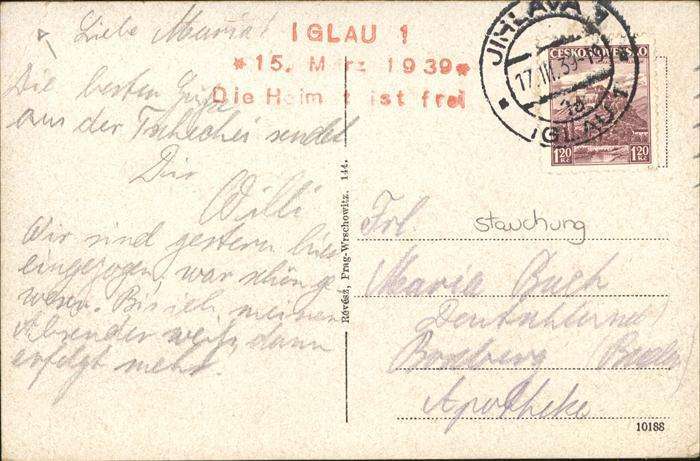 Liebe Maria!
Die besten Grüße
aus der Tschechei sendet
Dir
Willi
Wir sind gestern hier
eingezogen, war schön ge
wesen. Bis ich meinen
Absender weiß, dann
erfolgt mehr.
IGLAU 1
*15. März 1939*
Die Heimat ist frei
JIHLAVA 1
17.III.39-19
1a
IGLAU 1
ČESKOSLOVENSKO
1.20 Kč 1.20 Kč
Révész, Prag-Wrschowitz. 144.
Frl
stauchung
Maria Buch
Boxberg (Baden)
Apotheke
10188